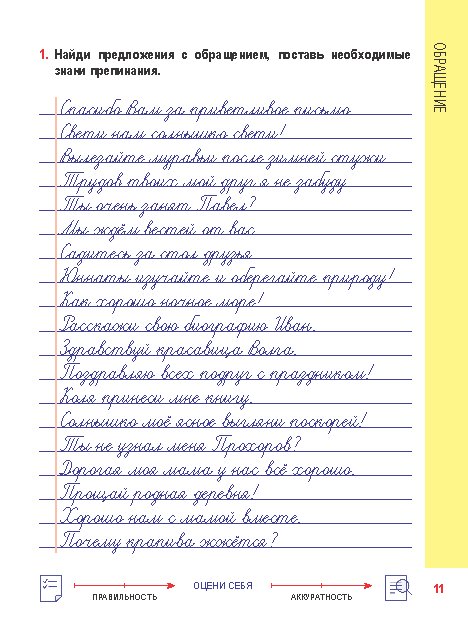 ОБРАЩЕНИЕ
1. Найди предложения с обращением, поставь необходимые
знаки препинания.
Спасибо Вам за приветливое письмо
Свети нам солнышко свети!
Вылезайте муравьи после зимней стужи
Трудов твоих мой друг я не забуду
Ты очень занят Павел?
Мы ждём вестей от вас
Садитесь за стол друзья
Юннаты изучайте и оберегайте природу!
Как хорошо ночное море!
Расскажи свою биографию Иван.
Здравствуй красавица Волга.
Поздравляю всех подруг с праздником!
Коля принеси мне книгу.
Солнышко моё ясное выгляни поскорей!
Ты не узнал меня Прохоров?
Дорогая моя мама у нас всё хорошо.
Прощай родная деревня!
Хорошо нам с мамой вместе.
Почему крапива жжётся?
ПРАВИЛЬНОСТЬ
ОЦЕНИ СЕБЯ
АККУРАТНОСТЬ
11